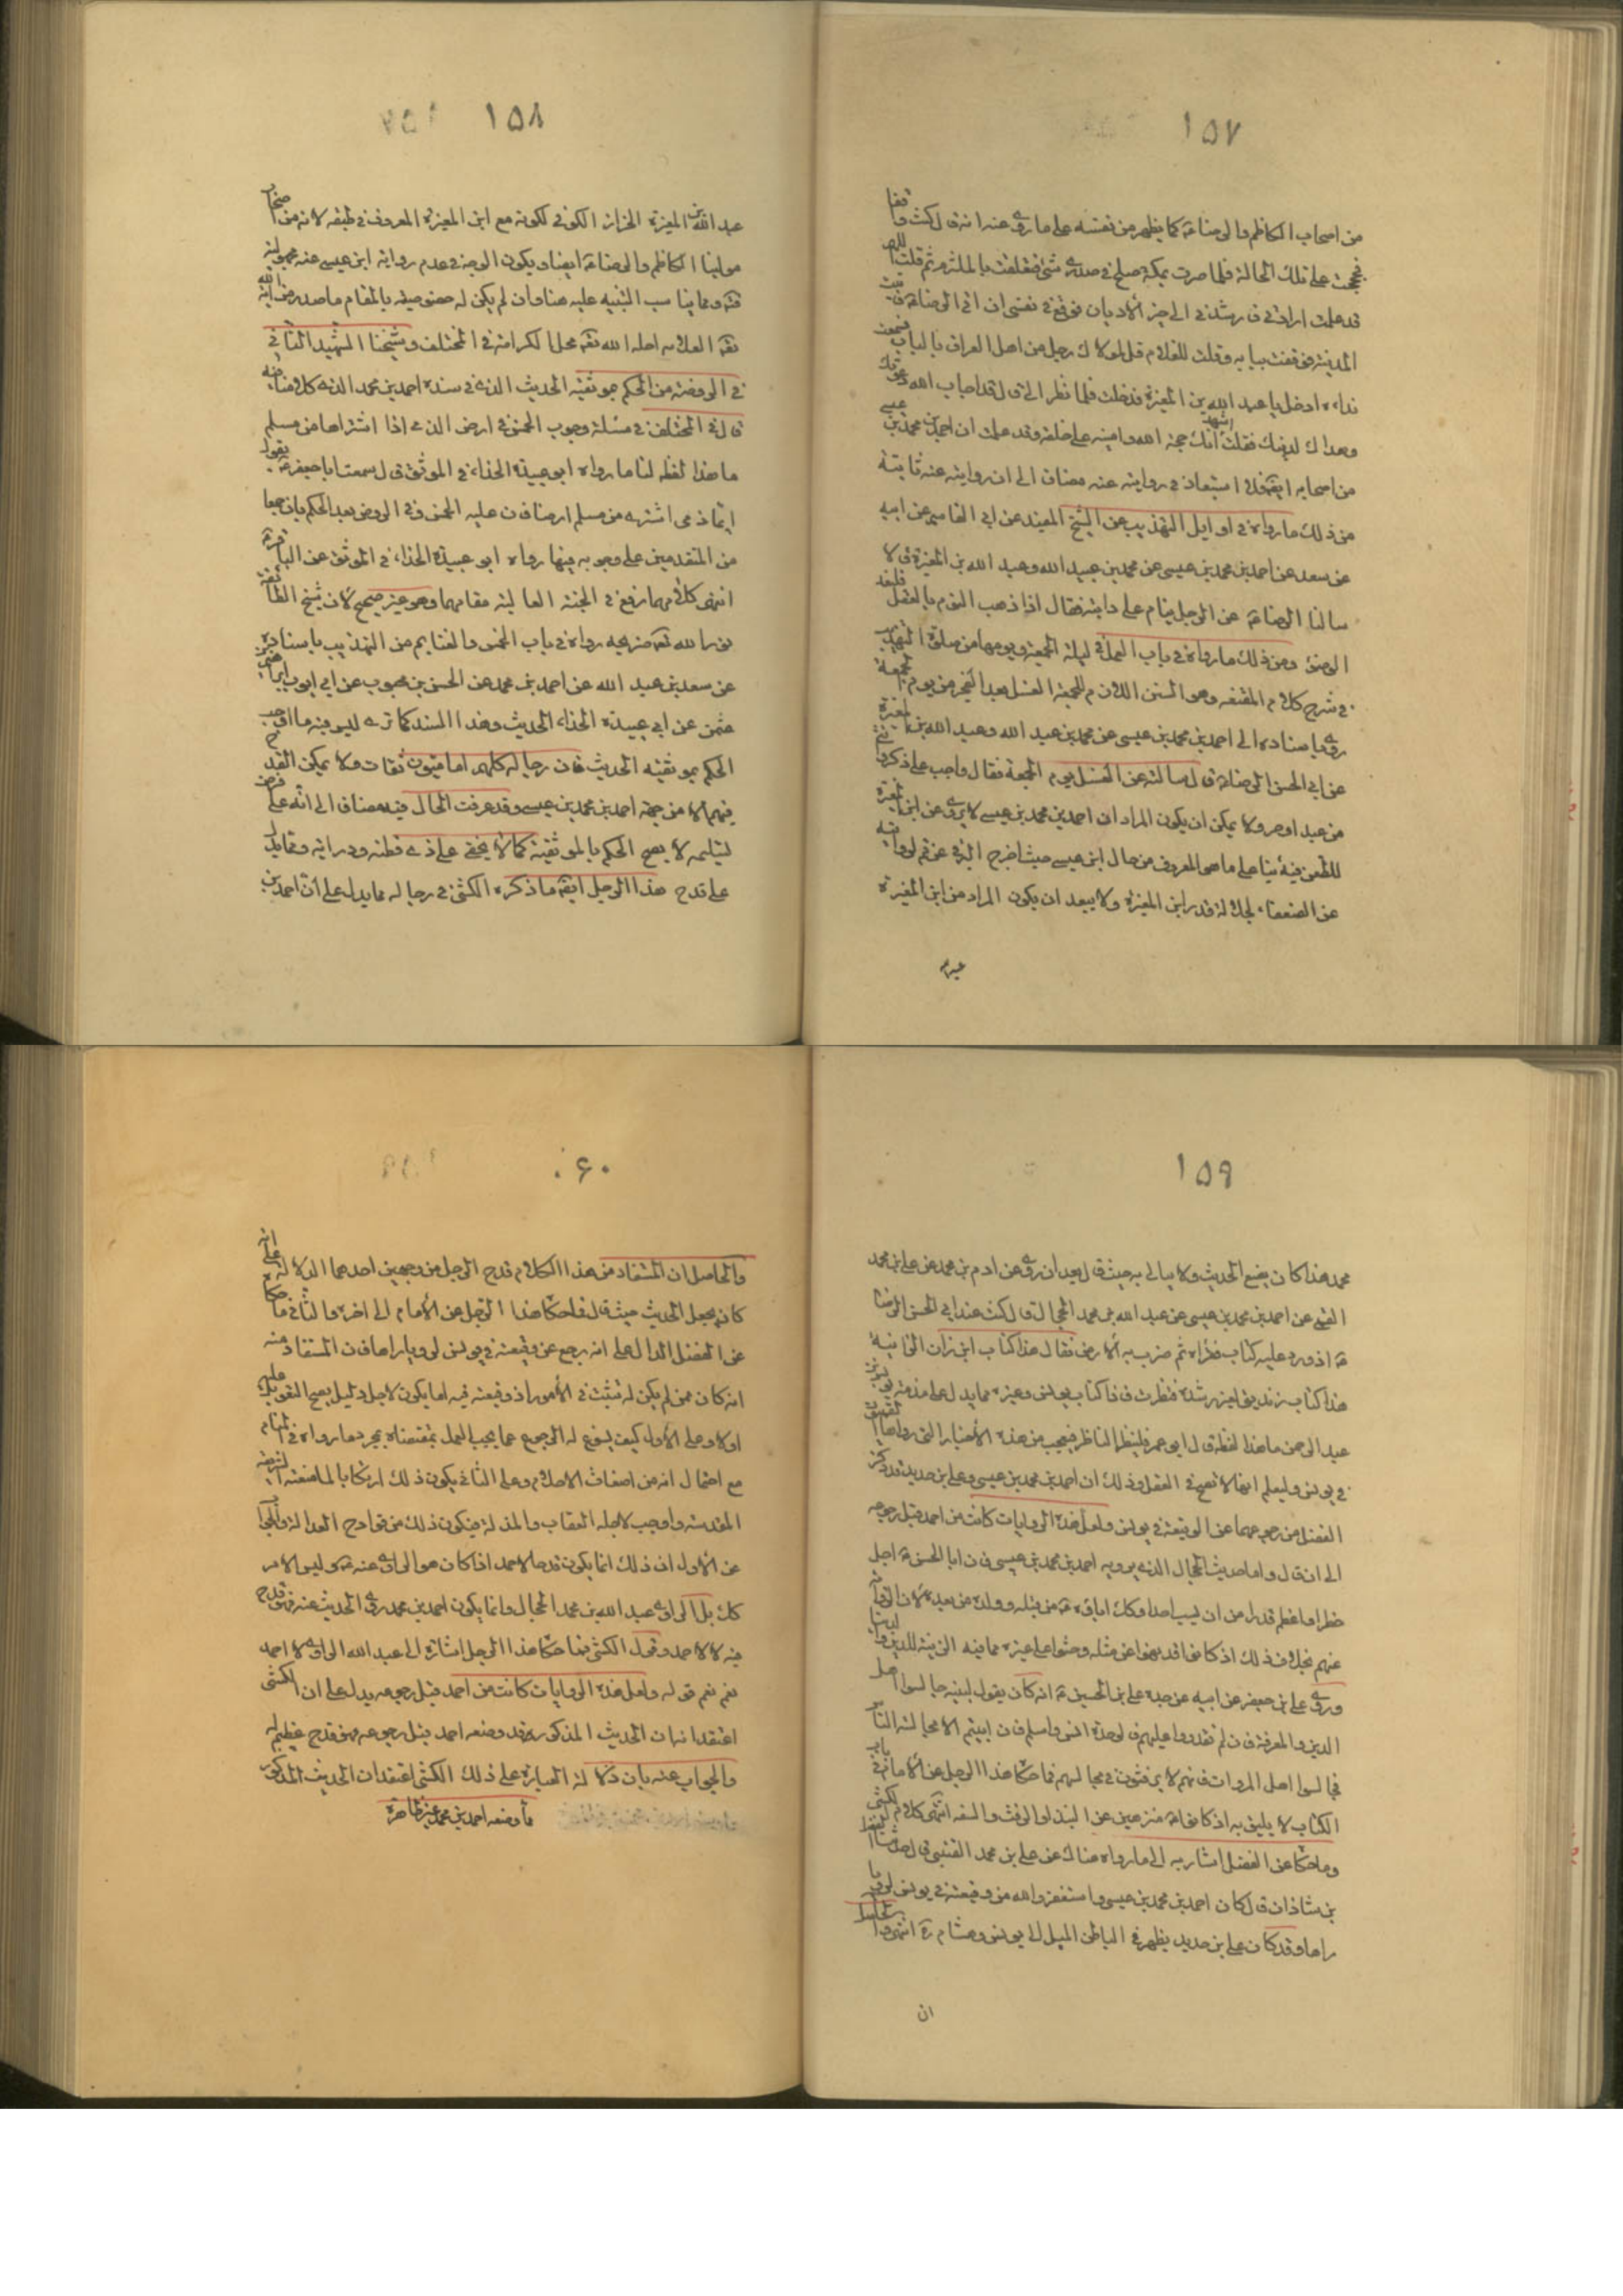 ١٥٧
من اصحاب الكاظم والرضا عه كما يظهر من نفسه على ما روى عنه انه قال كنت واقفا
فحججت على تلك الحالة فلما صرت بمكة خلج في صدرى شئ فتعلقت بالملتزم ثم قلت اللهم
قد علمت ارادتى فارشدنى الى خير الاديان فوقع في نفسى ان اتى الرضا عه فاتيت
المدينة فوقفت ببابه وقلت للغلام قل لمولاك رجل من اهل العراق بالباب فسمعت
نداءه ادخل يا عبد الله بن المغيرة فدخلت فلما نظر الى قال قد اجاب الله دعوتك
وهداك لدينك فقلت اشهد انك حجة الله وامينه على خلقه وقد علمت ان احمد بن محمد بن عيسى
من اصحابه ايضا فلا استبعاد في روايته عنه مضاف الى ان روايته عنه ثابتة
من ذلك ما رواه في اوايل التهذيب عن الشيخ المفيد عن ابى القاسم عن ابيه
عن سعد عن احمد بن محمد بن عيسى عن محمد بن عبيد الله وعبد الله بن المغيرة قالا
سالنا الرضا عه عن الرجل ينام على دابته فقال اذا ذهب النوم بالعقل فليعد
الوضوء ومن ذلك ما رواه في باب العمل في ليلة الجمعة ويومها من صلوة التهذيب
في شرح كلام المقنعه وهو السنن اللازم للجمعة الغسل بعد الفجر من يوم الجمعة
روى باسناده الى احمد بن محمد بن عيسى عن محمد بن عبد الله وعبد الله بن المغيرة
عن ابى الحسن الرضا عه قال سالته عن الغسل يوم الجمعة فقال واجب على كل ذكر وانثى
من عبد او حر ولا يمكن ان يكون المراد ان احمد بن محمد بن عيسى لا يروى عن ابن المغيرة
للطعن فيه بنا على ما هو المعروف من حال ابن عيسى حيث اخرج البرقى عن قم لروايته
عن الضعفاء لجلالة قدر ابن المغيرة ولا يبعد ان يكون المراد من ابن المغيرة
عبد
١٥٨
عبد الله بن المغيرة الخزاز الكوفى لكونه مع ابن المغيرة المعروف في طبقه لانه من اصحاب
مولينا الكاظم والرضا عه ايضا ويكون الوجه في عدم رواية ابن عيسى عنه مجهوليته
فته ومما يناسب التنبيه عليه هنا وان لم يكن له خصوصيته بالمقام ما صدر من اية الله
تعه العلامه احله الله تعه محل الكرامة في المختلف وشيخنا الشهيد الثانى
في الروضة من الحكم بموثقية الحديث الذى في سنده احمد بن محمد الذى كلامنا فيه
قال في المختلف في مسئلة وجوب الخمس في ارض الذمى اذا اشتراها من مسلم
ما هذا لفظه لنا ما رواه ابو عبيدة الحذاء في الموثق قال سمعت ابا جعفر عه يقول
ايما ذمى اشترى من مسلم ارضا فان عليه الخمس وفي الروض بعد الحكم بان جمعا
من المتقدمين على وجوبه فيها رواه ابو عبيدة الحذاء في الموثق عن الباقر عه
انتهى كلامهما رفع في الجنة العالية مقامهما وهو غير صحيح لان شيخ الطائفة
نور الله تعه ضريحه رواه في باب الخمس والغنايم من التهذيب باسناده
عن سعد بن عبد الله عن احمد بن محمد عن الحسن بن محبوب عن ابى ايوب ابراهيم بن
عثمن عن ابى عبيدة الحذاء الحديث وهذا السند كما ترى ليس فيه ما اوجب
الحكم بموثقية الحديث فان رجاله كلهم اماميون ثقات ولا يمكن القدح
فيهم الا من جهة احمد بن محمد بن عيسى وقد عرفت الحال فيه مضاف الى انه على فرض
تسليمه لا يصح الحكم بالموثقية كما لا يخفى على ذى فطنه ودراية ومما يدل
على قدح هذا الرجل ايضا ما ذكره الكشى في رجاله مما يدل على ان احمد بن
١٥٩
محمد هذا كان يضع الحديث ولا يبالى به حيث قال بعد ان روى عن ادم بن محمد عن على بن محمد
القمى عن احمد بن محمد بن عيسى عن عبد الله بن محمد الحجال قال كنت عند ابى الحسن الرضا
عه اذ ورد عليه كتاب فقراه ثم ضرب به الارض فقال هذا كتاب ابن زان الزانية
هذا كتاب زنديق لغير رشده فنظرت فاذا كتاب يونس وغيره مما يدل على مذمة يونس بن
عبد الرحمن ما هذا لفظه قال ابو عمر فلينظر الناظر فيتعجب من هذه الاخبار التى رواها القميون
في يونس وليعلم انها لا تصح في العقل وذلك ان احمد بن محمد بن عيسى وعلى بن حديد قد ذكر
الفضل من رجوعهما عن الوقيعة في يونس ولعل هذه الروايات كانت من احمد قبل رجوعه
الى ان قال واما حديث الحجال الذى يرويه احمد بن محمد بن عيسى فان ابا الحسن عه اجل
خطرا واعظم قدرا من ان يسب احدا وكك اباؤه عه من قبله وولده من بعده لان الرواية
عنهم بخلاف ذلك اذ كانوا قد نهوا عن مثله وحثوا على غيره مما فيه الزين للدين والدنيا
وروى على بن جعفر عن ابيه عن جده على بن الحسين عه انه كان يقول لبنيه جالسوا اهل
الدين والمعرفة فان لم تقدروا عليهم فالوحدة انس واسلم فان ابيتم الا مجالسة الناس
فجالسوا اهل المروات فانهم لا يرفثون في مجالسهم فما حكاه هذا الرجل عن الامام في باب
الكتاب لا يليق به اذ كانوا عه منزهين عن البذاء والرفث والسفه انتهى كلام الكشى
وما حكاه عن الفضل اشار به الى ما رواه هناك عن على بن محمد القتيبى قال حدثنا الفضل
بن شاذان قال كان احمد بن محمد بن عيسى واستغفر الله من وقيعته في يونس لرؤيا
راها وقد كان على بن حديد يظهر في الباطن الميل الى يونس وهشام ره انتهى والحاصل
ان
٠٦٠
والحاصل ان المستفاد من هذا الكلام قدح الرجل من وجهين احدهما الدلالة على انه
كان يجعل الحديث حيث قال فما حكاه هذا الرجل عن الامام الى اخره والثانى ما حكاه
عن الفضل الدال على انه رجع عن وقيعته في يونس لرويا راها فان المستفاد منه
انه كان ممن لم يكن له تثبت في الامور اذ وقيعته فيه اما يكون لاجل دليل يصح التعويل عليه
اولا وعلى الاول كيف يسوغ له الرجوع عما يجب العمل بمقتضاه بمجرد ما رواه في المنام
مع احتمال انه من اضغاث الاحلام وعلى الثانى يكون ذلك ارتكابا لما منعته الشريعة
المقدسة واوجب لاجله العقاب والمذلة فيكون ذلك من قوادح العدالة والجواب
عن الاول ان ذلك انما يكون قدحا لاحمد اذا كان هو الراوى عنه عه وليس الامر
كك بل الراوى عبد الله بن محمد الحجال وانما يكون احمد بن محمد روى الحديث عنه فهو قدح
فيه لا لاحمد وقول الكشى فما حكاه هذا الرجل اشارة الى عبد الله الراوى لا احمد
نعم نعم قوله ولعل هذه الروايات كانت من احمد قبل رجوعه يدل على ان الكشى
اعتقد ان الحديث المذكور قد وضعه احمد قبل رجوعه وهو قدح عظيم له
والجواب عنه بان دلالة العبارة على ذلك الكشى اعتقد ان الحديث المذكور
مما وضعه احمد بن محمد غير ظاهرة